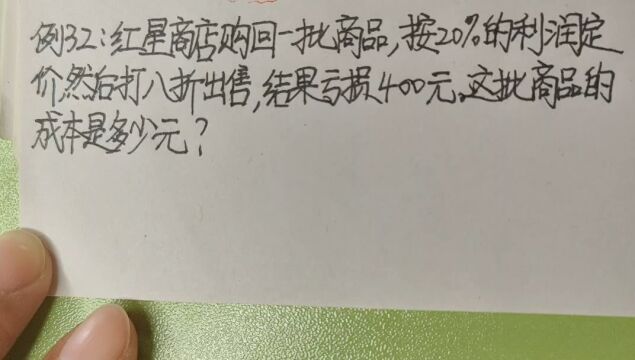 例32:红星商店购回一批商品,按20%的利润定
价然后打八折出售,结果亏损400元。这批商品的
成本是多少元?